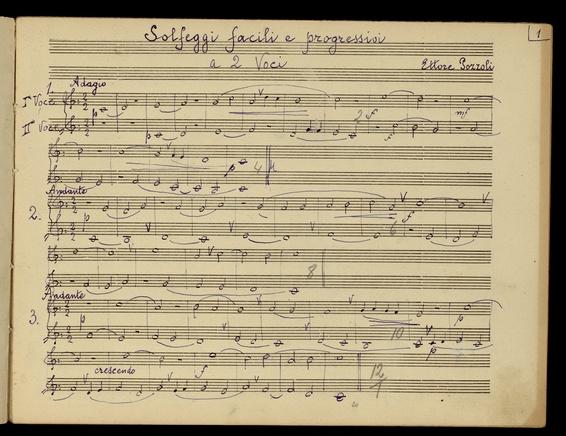 1
Solfeggi facili e progressivi
a 2 Voci
Ettore Pozzoli
1. Adagio
Iª Voce
p
2 f
mf
IIª Voce
p
f
p
4
Andante
2.
p
f
6
8
Andante
3.
p
10
p
p
crescendo
f
12